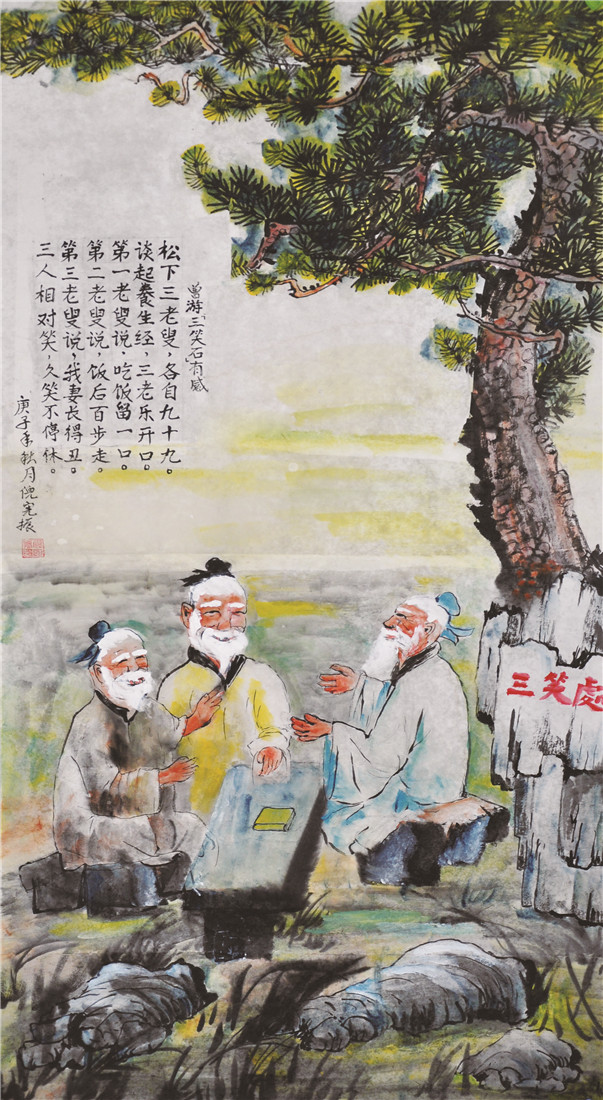 曾游「三笑石」有感
松下三老叟，各自九十九。
谈起養生经，三老乐开口。
第一老叟说，吃饭留一口。
第二老叟说，饭后百步走。
第三老叟说，我妻长得丑。
三人相对笑，久笑不停休。
庚子年秋月倪宪振
三笑處